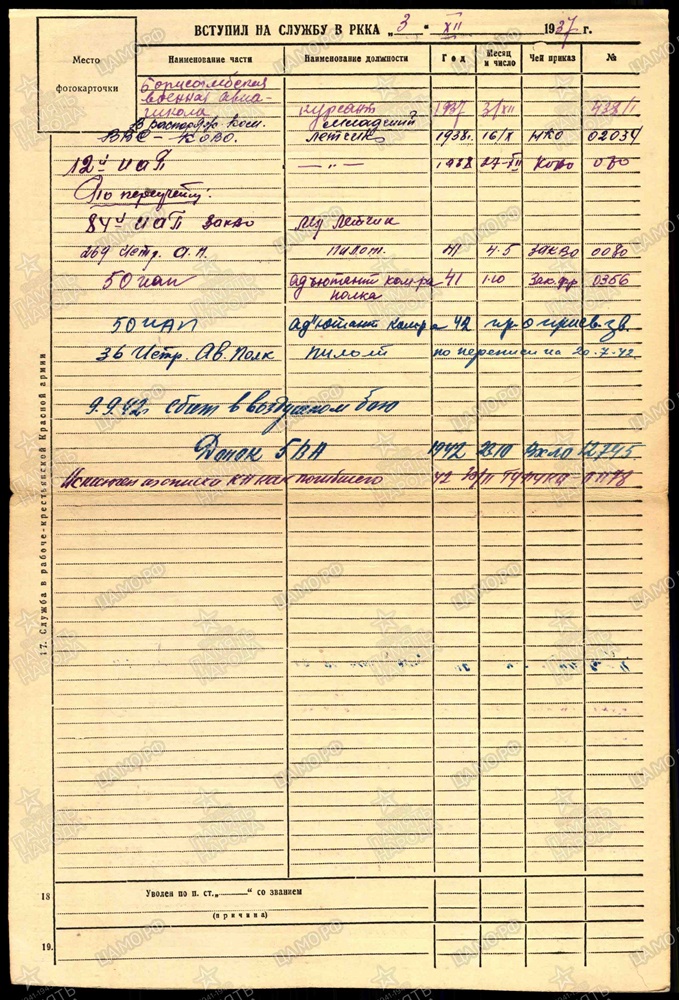 ВСТУПИЛ НА СЛУЖБУ В РККА „3“ XII 1937 г.
Место фотокарточки
Наименование части Наименование должности Год Месяц и число Чей приказ №
Борисоглебская
военная авиа-
школа курсант 1937 3/XII 438/1
В распоряж. Ком. младший
ВВС – КОВО. летчик 1938г. 16/X НКО 02034
12й иап —„— 1938 27-XII КОВО 030
По переучёту:
84й иап ЗакВО мл летчик
269 Истр. а.п. пилот. 41 4.5 ЗАКВО 0080
50 иап адъютант ком-ра 41 1-10 Зак.фр 0366
полка
50 иап адъютант комр-а 42
36 Истр. Ав. Полк пилот по переписи на 20-7-42
9.9.42г сбит в воздушном бою
5 ВА 1942 12745
как погибшего 42
17. Служба в рабоче-крестьянской Красной армии
18 Уволен по п. ст. „——“ со званием
(причина)
19.
ЦАМО.РФ
ПАМЯТЬ НАРОДА